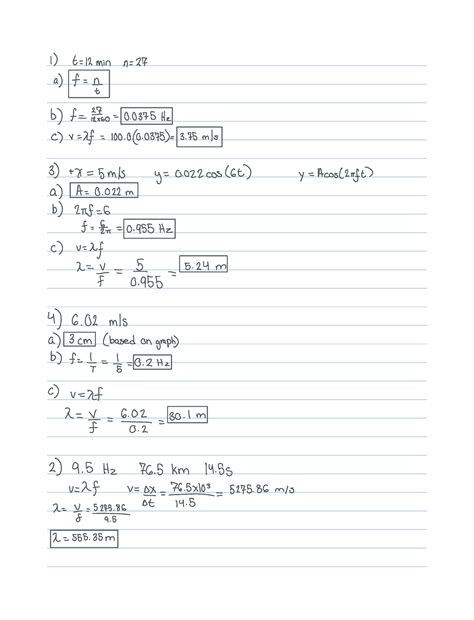 1) t=12 min n=27
a) f = n/t
b) f = 27/12x60 = 0.0375 Hz
c) v=λf = 100.0(0.0375) = 3.75 m/s
3) +x = 5m/s y = 0.022cos(6t) y = Acos(2πft)
a) A = 0.022 m
b) 2πf = 6
f = 6/2π = 0.955 Hz
c) v=λf
λ = v/f = 5/0.955 = 5.24 m
4) 6.02 m/s
a) 3 cm (based on graph)
b) f = 1/T = 1/5 = 0.2 Hz
c) v=λf
λ = v/f = 6.02/0.2 = 30.1 m
2) 9.5 Hz 76.5 km 14.5s
v=λf v = Δx/Δt = 76.5x10³/14.5 = 5275.86 m/s
λ = v/f = 5275.86/9.5
λ = 555.35 m